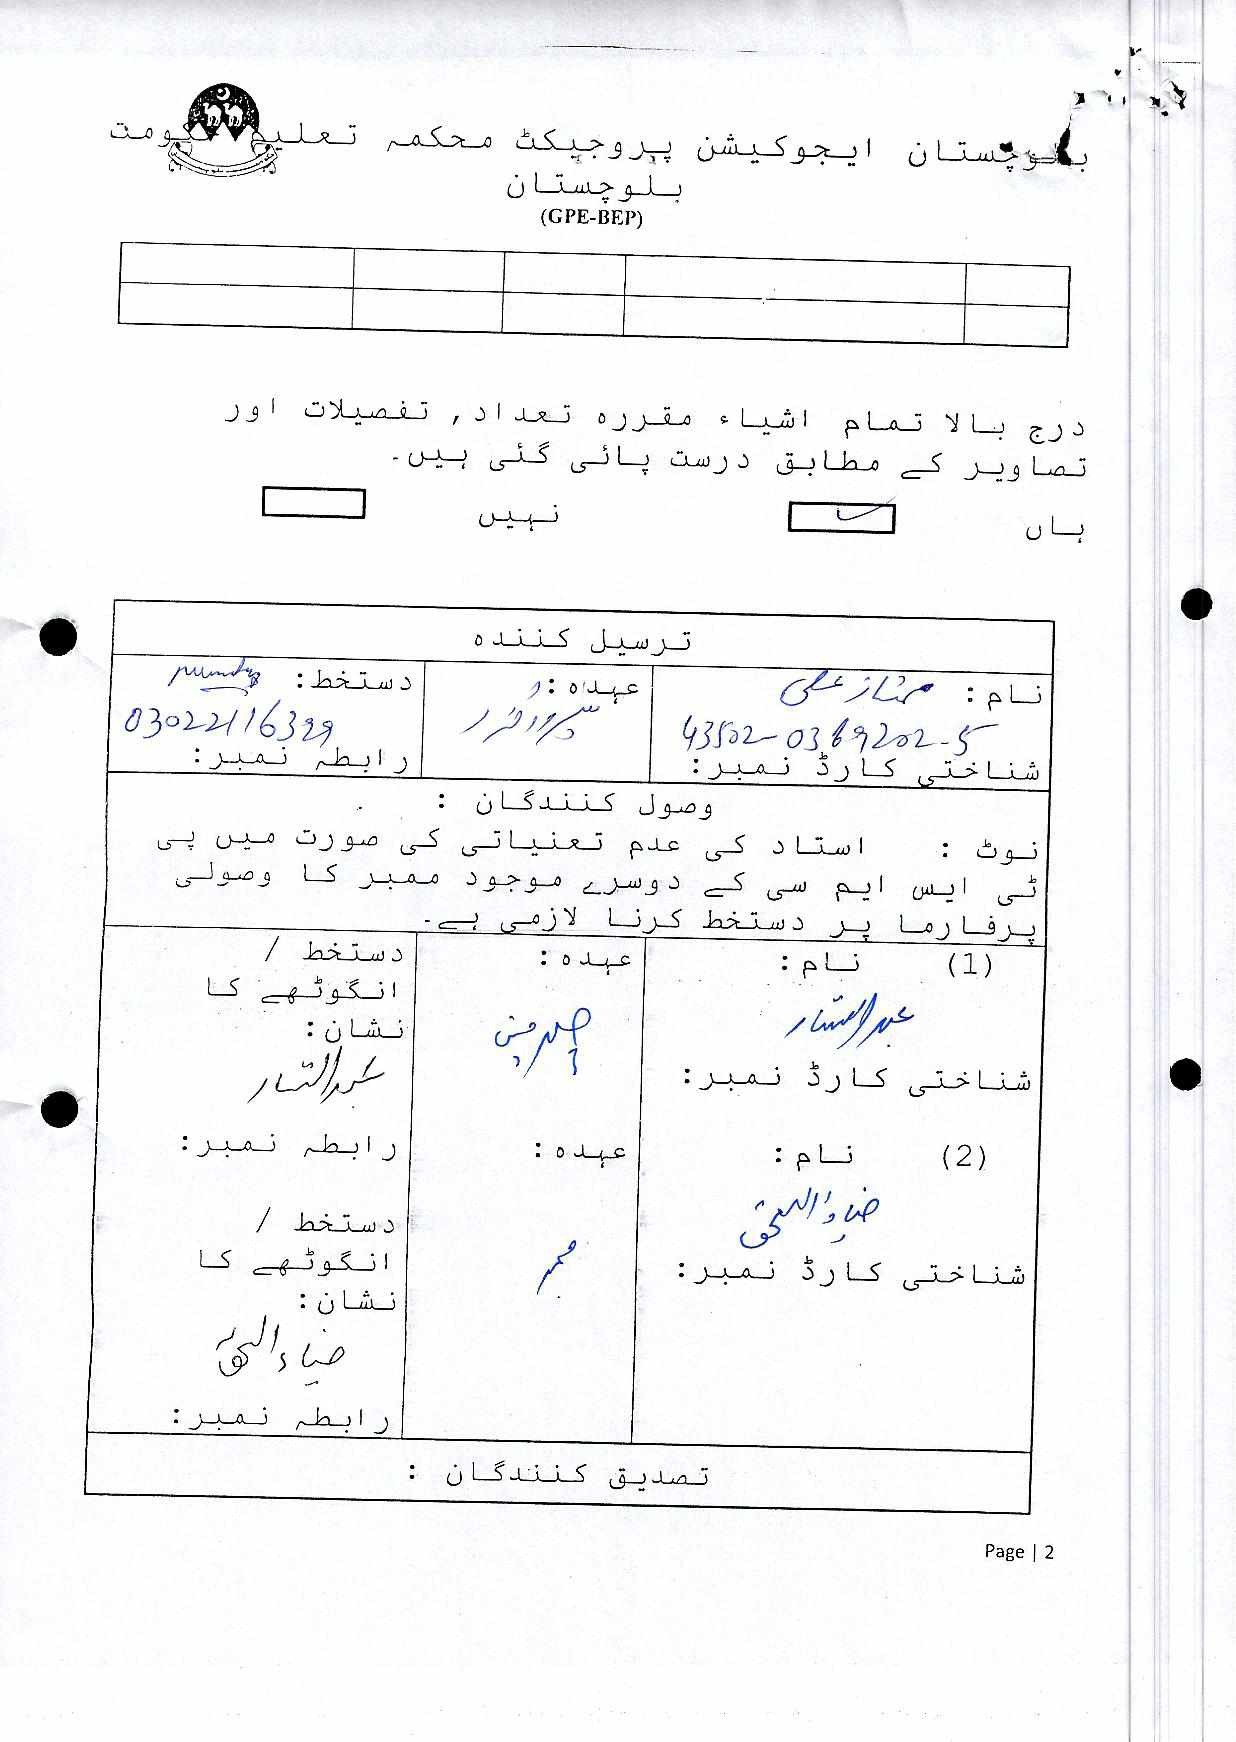 بلوچستان ایجوکیشن پروجیکٹ محکمہ تعلیم حکومت
بلوچستان
(GPE-BEP)
درج بالا تمام اشیاء مقررہ تعداد, تفصیلات اور
تصاویر کے مطابق درست پائی گئی ہیں۔
ہاں نہیں
ترسیل کنندہ
نام : ممتاز علی عہدہ : دستخط :
43502-0369202-5 03022116399
شناختی کارڈ نمبر: رابطہ نمبر:
وصول کنندگان :
نوٹ : استاد کی عدم تعنیاتی کی صورت میں پی
ٹی ایس ایم سی کے دوسرے موجود ممبر کا وصولی
پرفارما پر دستخط کرنا لازمی ہے۔
(1) نام : عہدہ : دستخط /
انگوٹھے کا
نشان :
عبدالستار چیرمین عبدالستار
شناختی کارڈ نمبر:
(2) نام : عہدہ : رابطہ نمبر:
ضیاء الحق
دستخط /
انگوٹھے کا
شناختی کارڈ نمبر: ممبر
نشان :
ضیاء الحق
رابطہ نمبر:
تصدیق کنندگان :
Page | 2